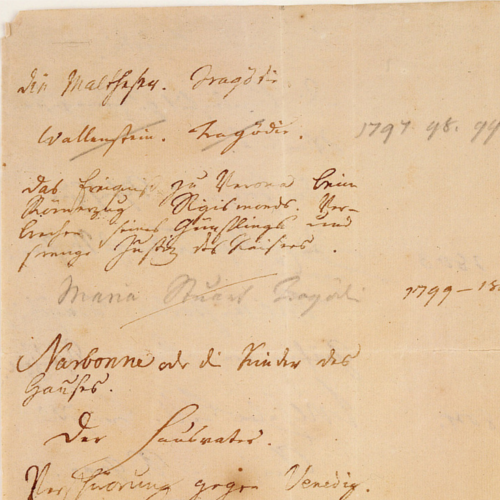 Die Maltheser. Tragödie
Wallenstein. Tragödie. 1797. 98. 99
Das Ereigniß zu Verona beim
Römerzug Sigismonds. Ver-
brechen seines Günstlings und
strenge Justiz des Kaisers.
Maria Stuart Tragödie 1799-18
Narbonne oder die Kinder des
Hauses.
Der Hausvater.
Verschwörung gegen Venedig.